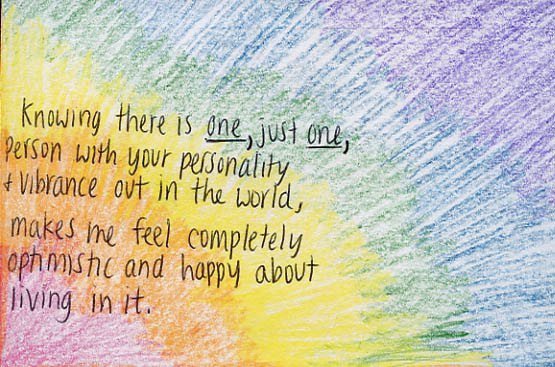 Knowing there is one, just one,
person with your personality
+ vibrance out in the world,
makes me feel completely
optimistic and happy about
living in it.